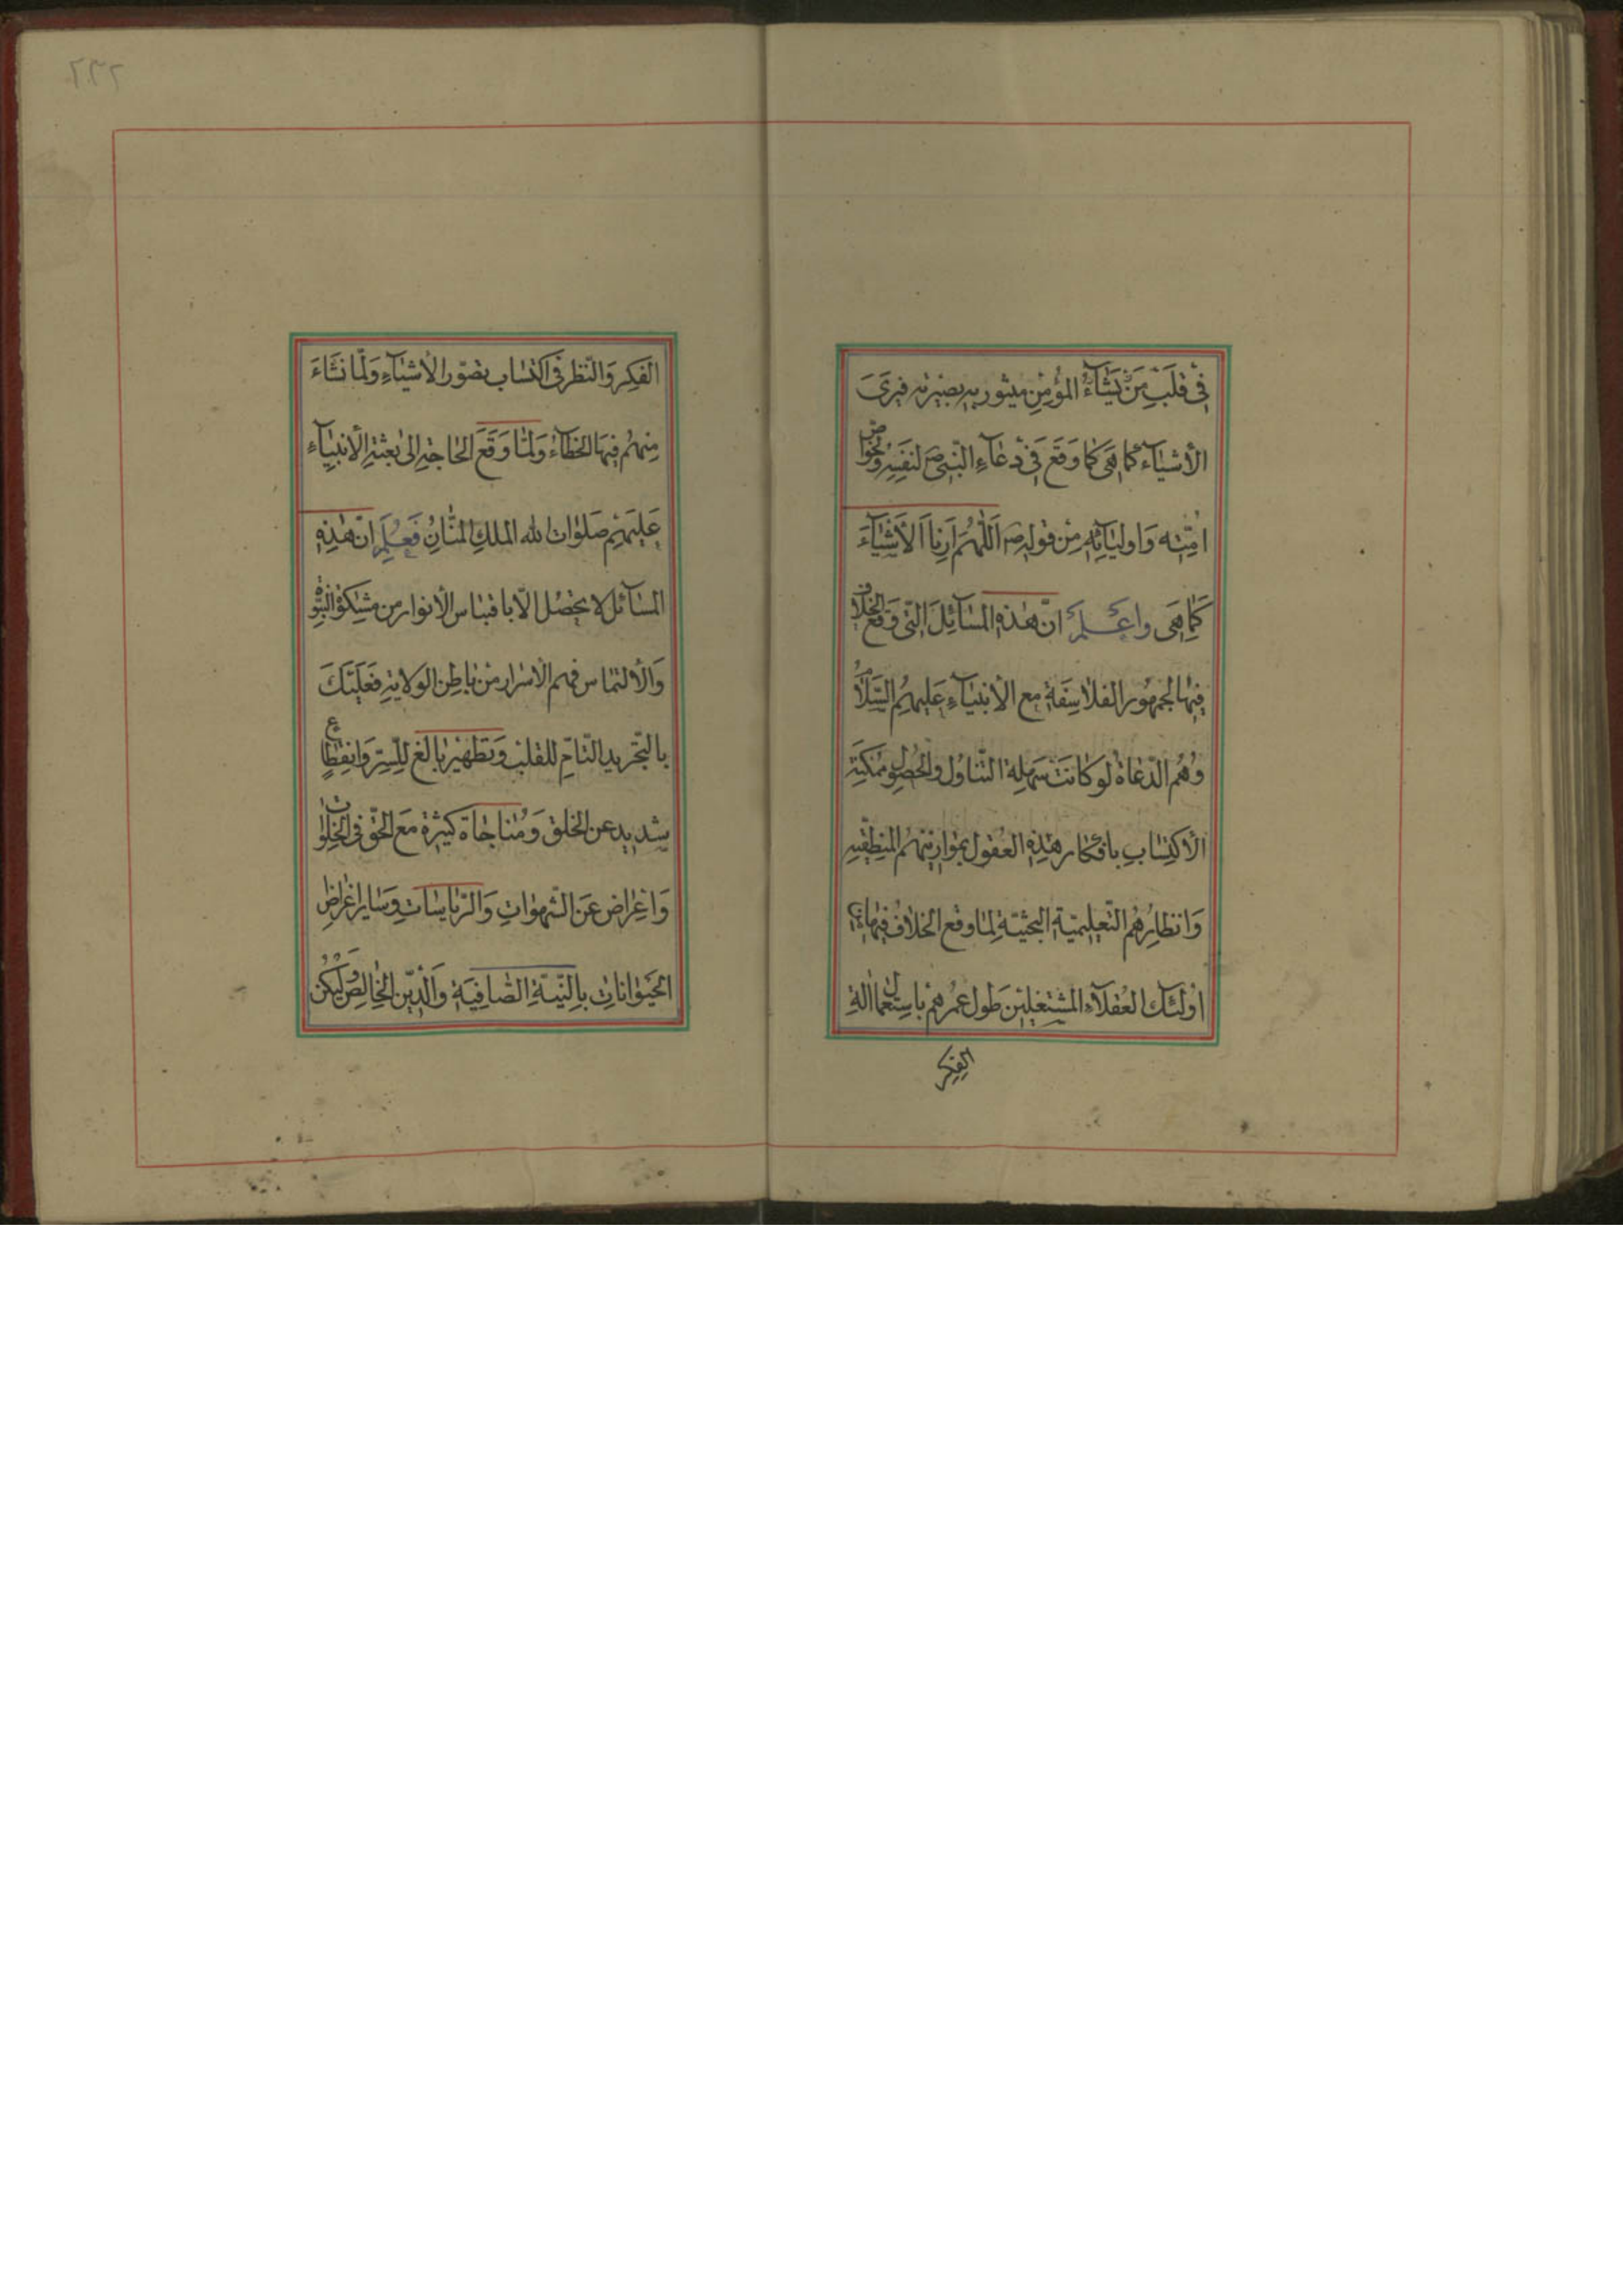 في قلب من يشاء المؤمن فيتنور به بصيرته فيرى
الأشياء كما هي كما وقع في دعاء النبي ص لنفسه ولخواص
امته واوليائه من قوله ص اللهم ارنا الأشياء
كما هي واعلم ان هذه المسائل التي وقع الخلاف
فيها لجمهور الفلاسفة مع الأنبياء عليهم السلام
وهم الدعاة لو كانت سهلة التناول والحصول ممكنة
الأكتساب بافكار هذه العقول بموازينهم المنطقية
وانظارهم التعليمية البحثية لما وقع الخلاف فيها
اولئك العقلاء المشتغلين طول عمرهم باستعمال الة
الفكر
الفكر والنظر في اكتساب تصور الأشياء ولما نشاء
منهم فيها الخطاء ولما وقع الحاجة الى بعثة الأنبياء
عليهم صلوات الله الملك المنان فعلم ان هذه
المسائل لا يحصل الا باقتباس الأنوار من مشكوة النبوة
والألتماس فهم الأسرار من باطن الولاية فعليك
بالتجريد التام للقلب وتطهير بالغ للسر وانقطاع
شديد عن الخلق ومناجاة كثيرة مع الحق في الخلوات
واعراض عن الشهوات والرياسات وساير اغراض
الحيوانات بالنية الصافية والدين الخالص وليكن